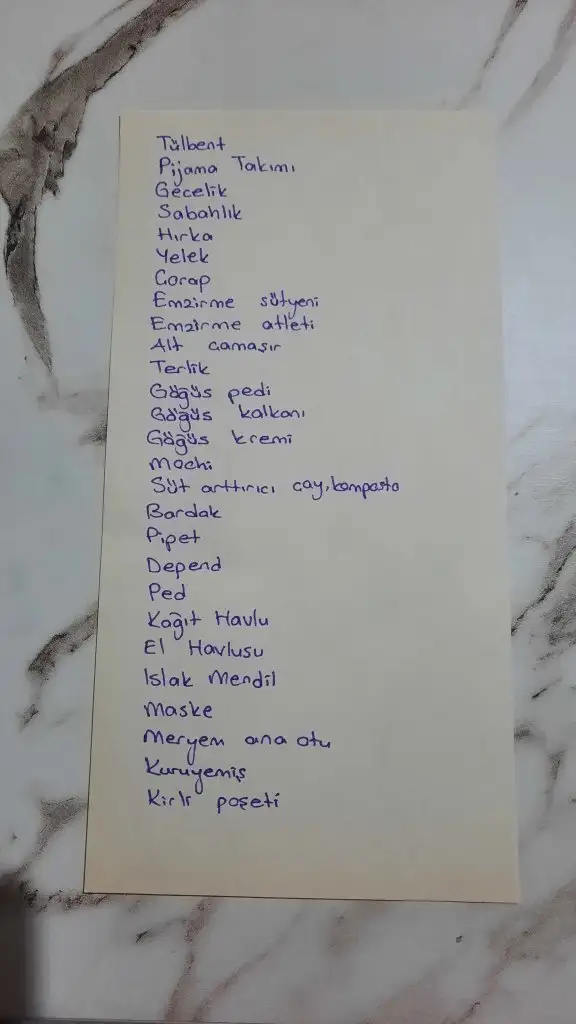 Tülbent
Pijama Takımı
Gecelik
Sabahlık
Hırka
Yelek
Çorap
Emzirme sütyeni
Emzirme atleti
Alt camaşır
Terlik
Göğüs pedi
Göğüs kalkanı
Göğüs kremi
Mochi
Süt arttırıcı cay, komposto
Bardak
Pipet
Depend
Ped
Kağıt Havlu
El Havlusu
Islak Mendil
Maske
Meryem ana otu
Kuruyemiş
Kirli poşeti